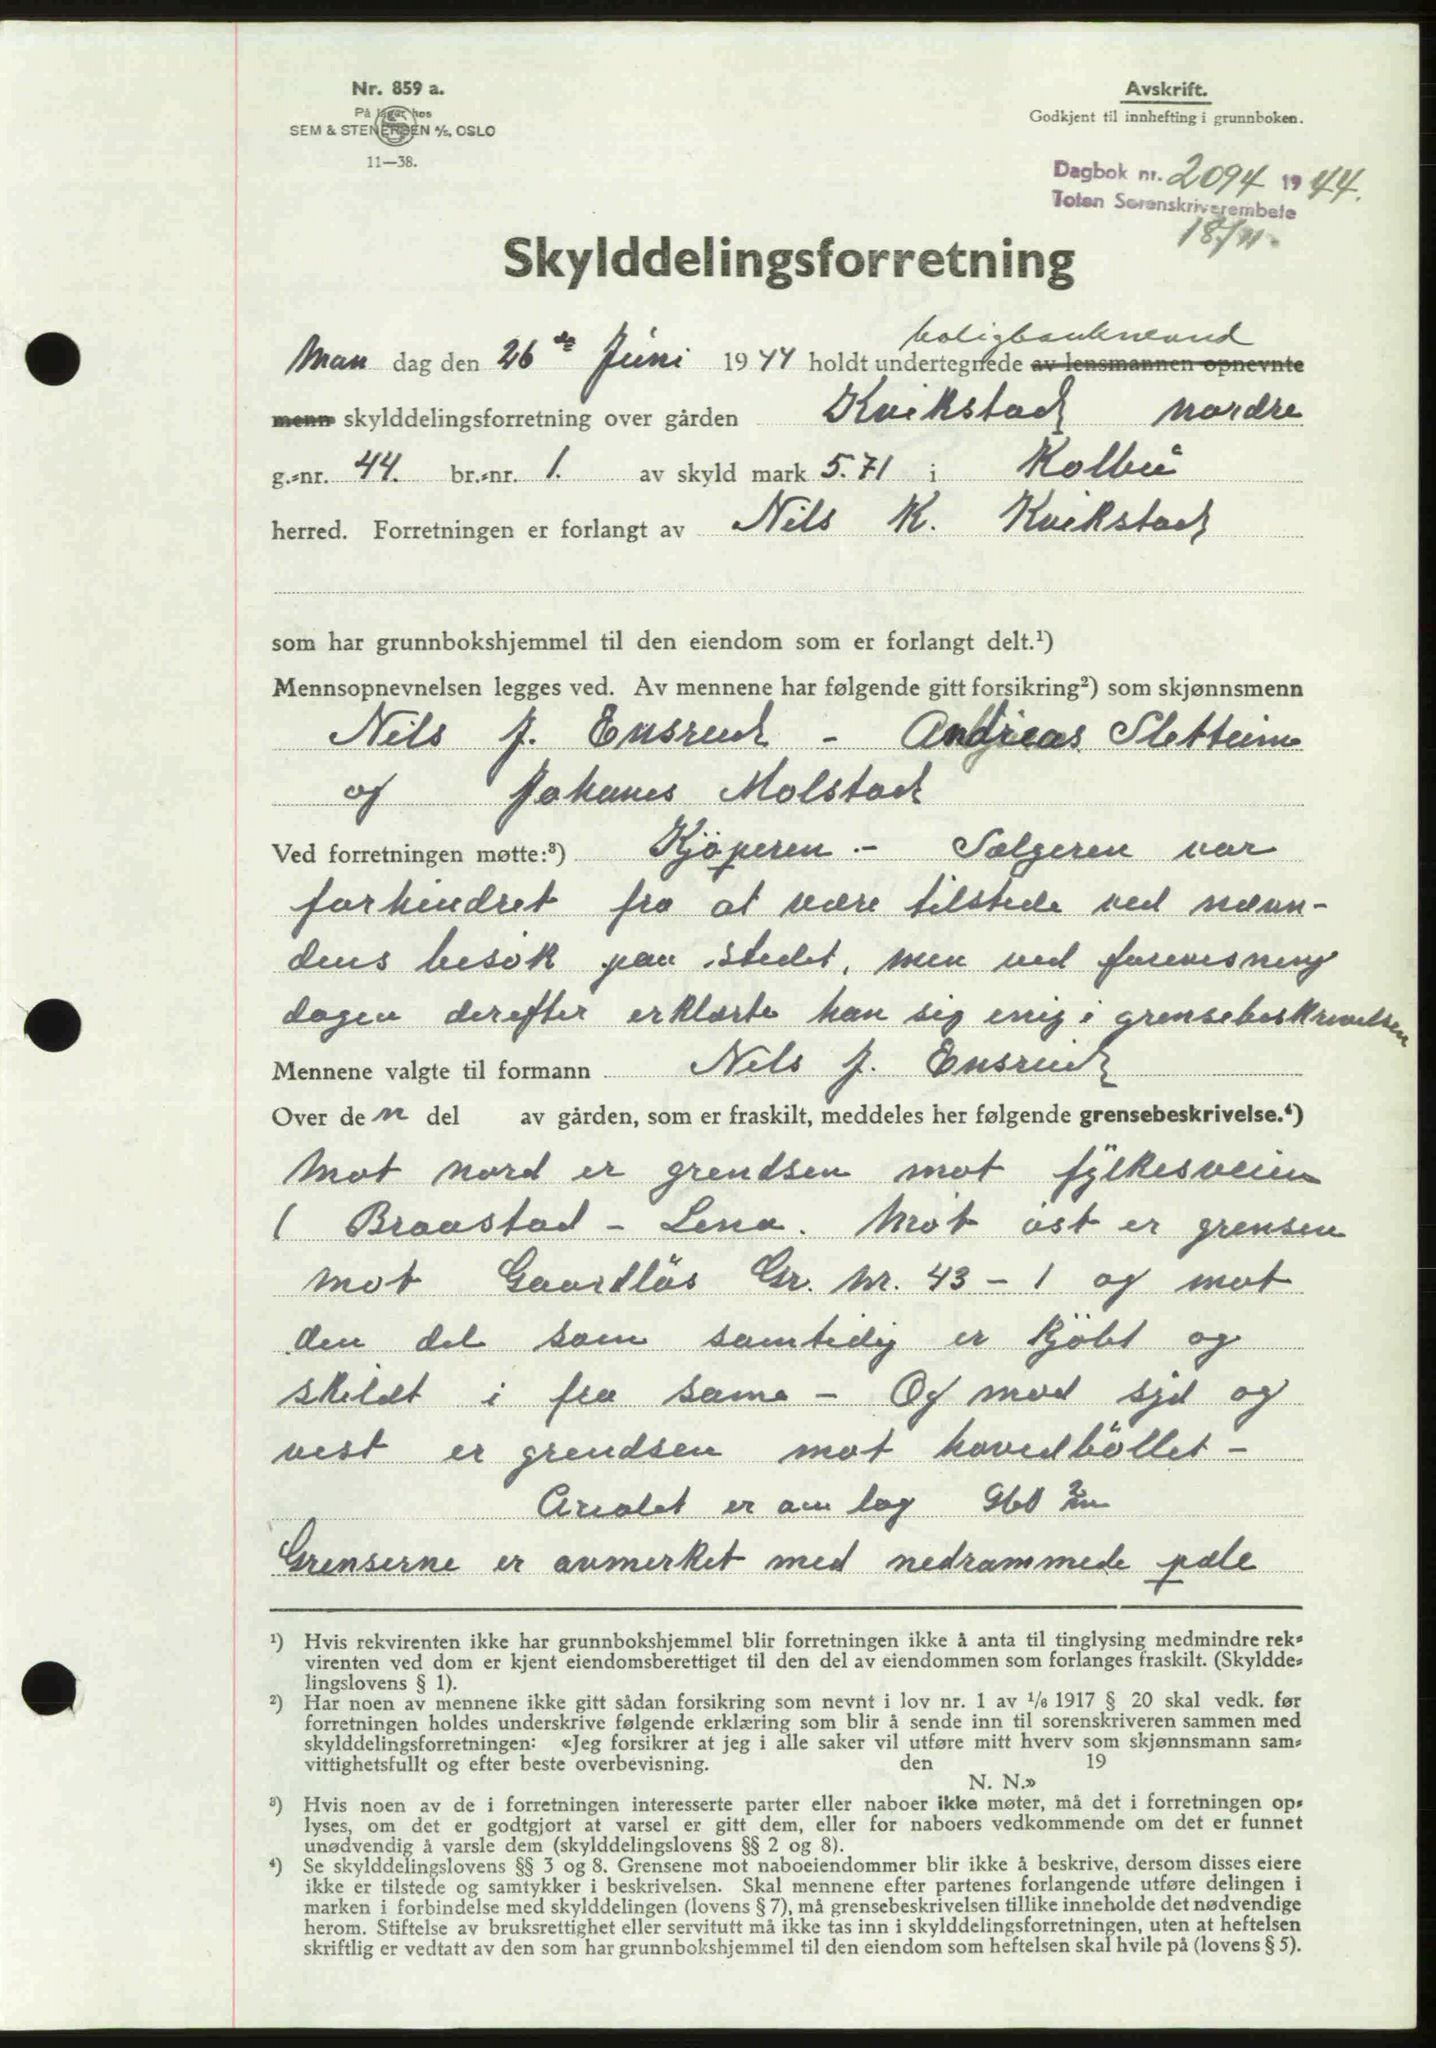 Nr. 859 a.
På lager hos
SEM & STENERSEN A/S, OSLO
11—38.
Avskrift.
Godkjent til innhefting i grunnboken.
Dagbok nr. 2094 1944.
Toten Sorenskriverembete
18/11
Skylddelingsforretning
boligbanknevnd
Man dag den 26de Juni 1944 holdt undertegnede av lensmannen opnevnte
menn skylddelingsforretning over gården Kvikstad nordre
g.-nr. 44. br.-nr. 1. av skyld mark 5.71 i Kolbu
herred. Forretningen er forlangt av Nils K. Kvikstad
som har grunnbokshjemmel til den eiendom som er forlangt delt.¹)
Mennsopnevnelsen legges ved. Av mennene har følgende gitt forsikring²) som skjønnsmenn
Nils J. Ensrud - Andreas Slettum
og Johanes Molstad
Ved forretningen møtte:³) Kjöperen - Sælgeren var
forhindret fra at være tilstede ved nævn-
dens besök paa stedet, men ved forevisning
dagen derefter erklærte han sig enig i grensebeskrivelsen
Mennene valgte til formann Nils J. Ensrud
Over den del av gården, som er fraskilt, meddeles her følgende grensebeskrivelse.⁴)
Mot nord er grendsen mot fylkesveien
( Braastad - Lena. Mot öst er grensen
mot Gaardlös Gr. Nr. 43 - 1 og mot
den del som samtidig er kjöbt og
skildt i fra same - Og mod syd og
vest er grendsen mot hovedböllet -
Arealet er om lag 960 m²
Grenserne er avmerket med nedrammede pæle
¹) Hvis rekvirenten ikke har grunnbokshjemmel blir forretningen ikke å anta til tinglysing medmindre rek-
virenten ved dom er kjent eiendomsberettiget til den del av eiendommen som forlanges fraskilt. (Skyldde-
lingslovens § 1).
²) Har noen av mennene ikke gitt sådan forsikring som nevnt i lov nr. 1 av ¹/₆ 1917 § 20 skal vedk. før
forretningen holdes underskrive følgende erklæring som blir å sende inn til sorenskriveren sammen med
skylddelingsforretningen: «Jeg forsikrer at jeg i alle saker vil utføre mitt hverv som skjønnsmann sam-
vittighetsfullt og efter beste overbevisning. den 19
N. N.»
³) Hvis noen av de i forretningen interesserte parter eller naboer ikke møter, må det i forretningen op-
lyses, om det er godtgjort at varsel er gitt dem, eller for naboers vedkommende om det er funnet
unødvendig å varsle dem (skylddelingslovens §§ 2 og 8).
⁴) Se skylddelingslovens §§ 3 og 8. Grensene mot naboeiendommer blir ikke å beskrive, dersom disses eiere
ikke er tilstede og samtykker i beskrivelsen. Skal mennene efter partenes forlangende utføre delingen i
marken i forbindelse med skylddelingen (lovens § 7), må grensebeskrivelsen tillike inneholde det nødvendige
herom. Stiftelse av bruksrettighet eller servitutt må ikke tas inn i skylddelingsforretningen, uten at heftelsen
skriftlig er vedtatt av den som har grunnbokshjemmel til den eiendom som heftelsen skal hvile på (lovens § 5).